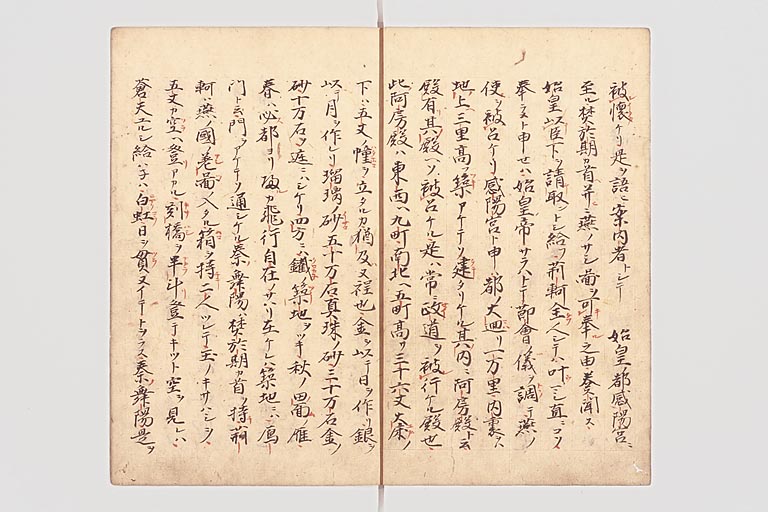 被懐ケリ是ヲ語ヒ案内者トシテ 始皇ノ都咸陽宮ニ
至ル樊於期カ首并ニ燕ノサシ圖ヲ可奉之由奏聞ス
始皇以臣下ヲ請取ントシ給フ荊軻全人シテハ叶マシ直ニコソ
奉ラメト申セハ始皇帝サラハトテ節會ノ儀ヲ調テ燕ノ
使ヲ被召ケリ咸陽宮ト申ハ都ノ大四リ一万里内裏ハ
地上三里高ク築アケテソ建タリケル其内ニ阿房殿ト云
殿有其殿ヘソ被召ケル是ハ常ニ政道ヲ被行ケル殿也
此阿房殿ハ東西ヘ九町南北ヘ五町高サ三十六丈大床ノ
下ハ五丈ノ幢ヲ立タルカ猶及ヌ程也金ヲ以テ日ヲ作リ銀ヲ
以テ月ヲ作レリ瑠璃ノ砂五十万石真珠ノ砂三十万石金ノ
砂十万石ヲ庭ニハシケリ四方ニハ鐵ノ築地ヲツキ秋ノ田面ノ雁
春ハ必都ヨリ
飛行自在ノサハリ在ケレハ築地ニハ鴈
門ト云門ヲアケテソ通シケル秦舞陽ハ樊於期カ首ヲ持荊
軻ハ燕ノ國ノ差圖入タル箱ヲ持二人ツレテ玉ノキサハシヲ
五丈カ空ヘ登アカル刻橋ヲ半斗登テキツト空ヲ見レハ
蒼天ユルシ給ハネハ白虹日ヲ貫ヌイテトヲラス秦舞陽是ヲ